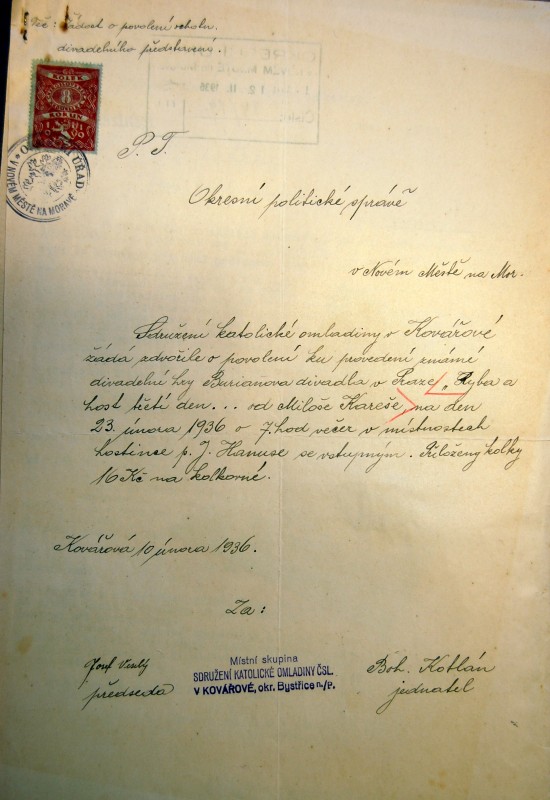 Věc: Žádost o povolení ochotn.
divadelního představení.
KOLEK
8
KORUN
1920
V NOVÉM MĚSTĚ NA MORAVĚ
ÚŘAD
12. II. 1936
P. T.
Okresní politické správě
v Novém Městě na Mor.
Sdružení katolické omladiny v Kovářové
žádá zdvořile o povolení ku provedení známé
divadelní hry Burianova divadla v Praze „Ryba a
host třetí den... od Miloše Kareše, na den
23. února 1936 o 7. hod večer v místnostech
hostince p. J. Hanuse se vstupným. Přiloženy kolky
16 Kč na kolkovné.
Kovářová 10 února 1936.
Za:
Josef Veselý
předseda
Místní skupina
SDRUŽENÍ KATOLICKÉ OMLADINY ČSL.
V KOVÁŘOVÉ, okr. Bystřice n./P.
Boh. Kotlán
jednatel